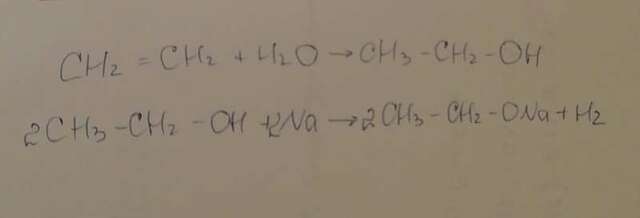 CH2 = CH2 + H2O → CH3 - CH2 - OH
2CH3 - CH2 - OH + 2Na → 2CH3 - CH2 - ONa + H2